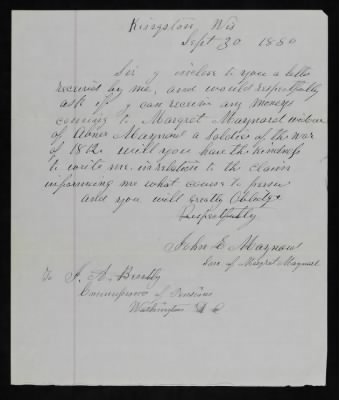 Kingston, Wis
Sept 30 1880
Sir I inclose to you a letter
received by me, and would respectfully
ask if I can receive any moneys
coming to Margret Maynard widow
of Abner Maynard a soldier of the war
of 1812 will you have the kindness
to write me in relation to the claim
informing me what course to pursue
and you will greatly Oblidge
Respectfully
John E Maynard
Son of Margret Maynard
To J. A. Bentley
Commissioner of Pensions
Washington D C